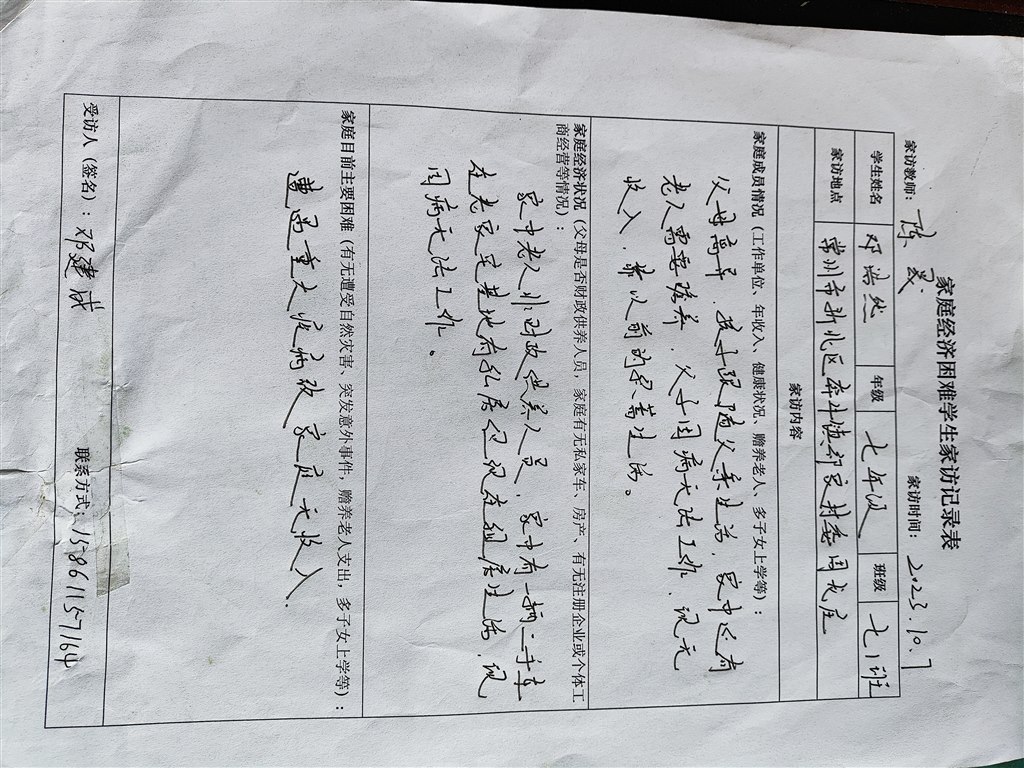 家庭经济困难学生家访记录表
家访教师：陈 家访时间：2023.10.7
学生姓名 邓浩然 年级 七年级 班级 七1班
家访地点 常州市新北区奔牛镇祁家村委周戈庄
家访内容
家庭成员情况（工作单位、年收入、健康状况、赡养老人、多子女上学等）：
父母离异，孩子跟随父亲生活，家中还有
老人需要赡养，父子因病无法工作，现无
收入，靠以前的积蓄生活。
家庭经济状况（父母是否财政供养人员，家庭有无私家车、房产、有无注册企业或个体工
商经营等情况）：
家中老人非财政供养人员，家中有一辆二手车
在老家宅基地有私房但现在租房生活，现
因病无法工作。
家庭目前主要困难（有无遭受自然灾害、突发意外事件，赡养老人支出，多子女上学等）：
遭遇重大疾病致家庭无收入.
受访人（签名）：邓建成 联系方式：15861157164